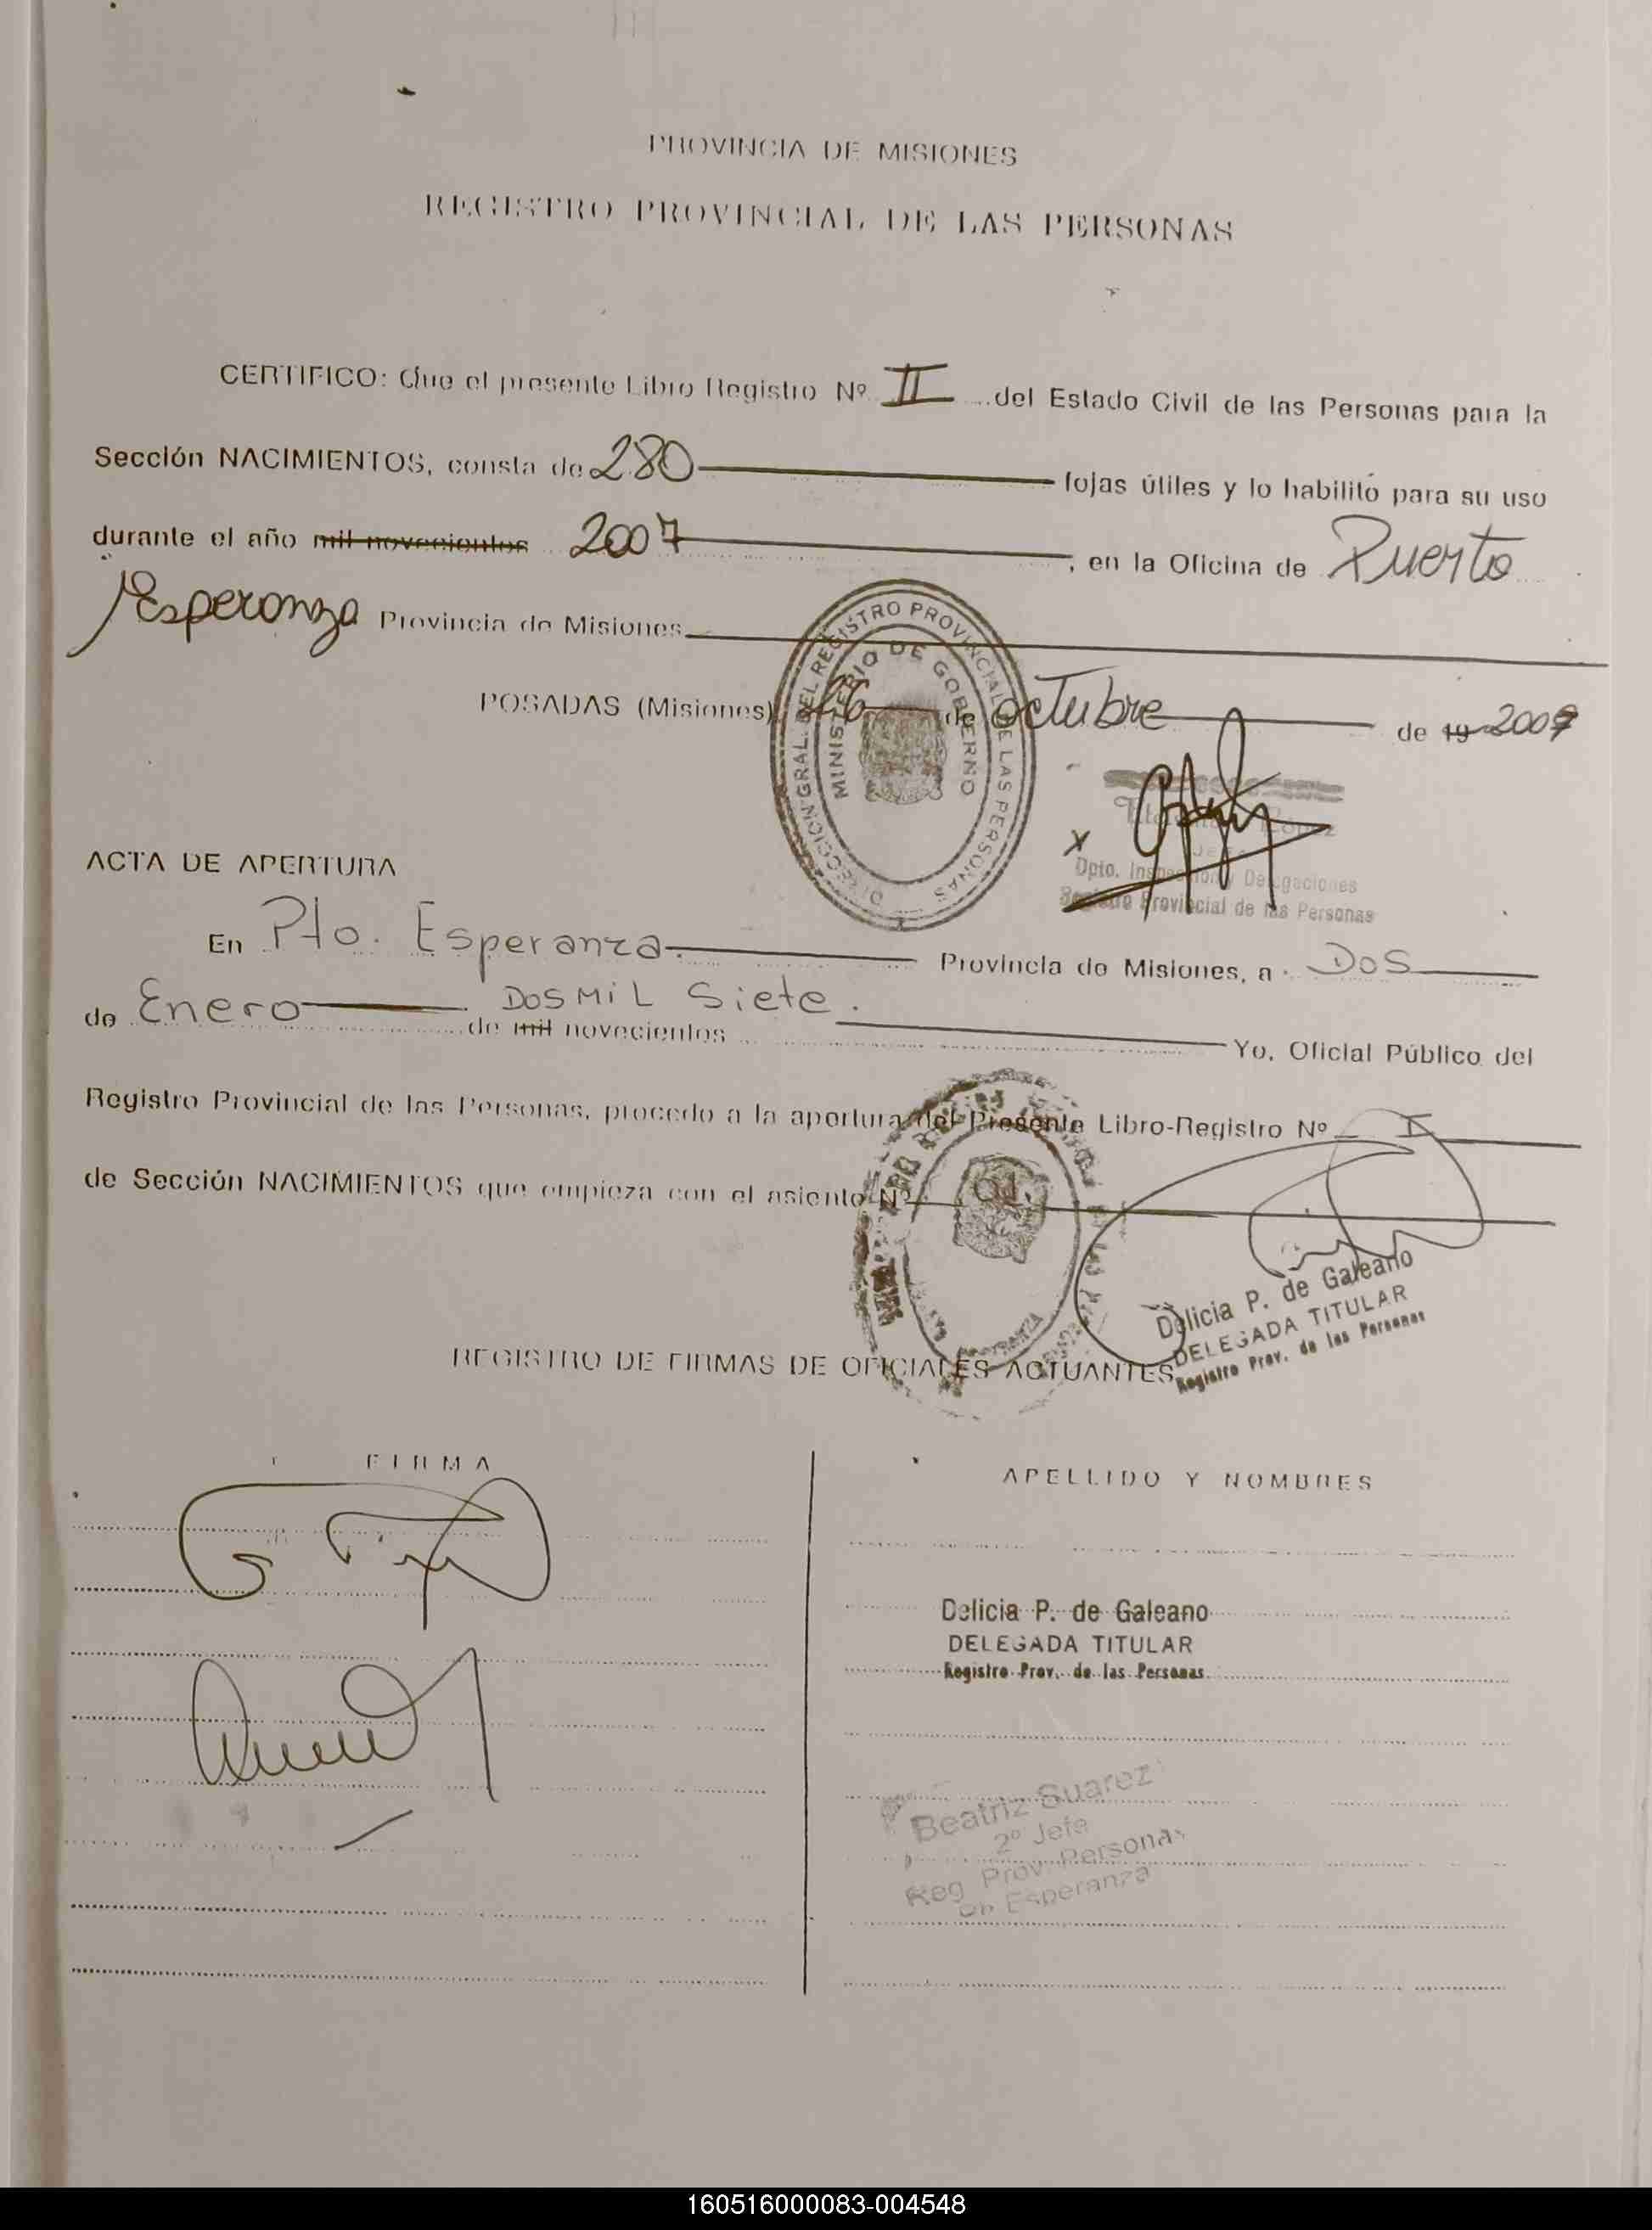 PROVINCIA DE MISIONES
REGISTRO PROVINCIAL DE LAS PERSONAS
CERTIFICO: Que el presente Libro Registro Nº II del Estado Civil de las Personas para la
Sección NACIMIENTOS, consta de 280 fojas útiles y lo habilitó para su uso
durante el año mil novecientos 2007, en la Oficina de Puerto
Esperanza Provincia de Misiones
POSADAS (Misiones) 26 de octubre de 19 200
DIRECCION GRAL. DEL REGISTRO PROVINCIAL DE LAS PERSONAS
MINISTERIO DE GOBIERNO
Dpto. Inspección y Delegaciones
Registro Provincial de las Personas
ACTA DE APERTURA
En Pto. Esperanza. Provincia de Misiones, a DOS
de Enero de mil novecientos DOSMIL Siete. Yo, Oficial Público del
Registro Provincial de las Personas, procedo a la apertura del Presente Libro-Registro Nº I
de Sección NACIMIENTOS que empieza con el asiento Nº 01.
Delicia P. de Galeano
DELEGADA TITULAR
Registro Prov. de las Personas
REGISTRO DE FIRMAS DE OFICIALES ACTUANTES
FIRMA
APELLIDO Y NOMBRES
Delicia P. de Galeano
DELEGADA TITULAR
Registro Prov. de las Personas
Beatriz Suarez
2º Jefe
Reg Prov Personas
Esperanza
160516000083-004548